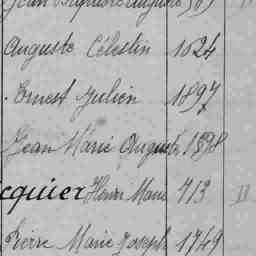 Auguste Célestin 1624
Ernest Julien 1897
Jean Marie Auguste 1598
cquier Henri Marie 713 II
Pierre Marie Joseph 1749